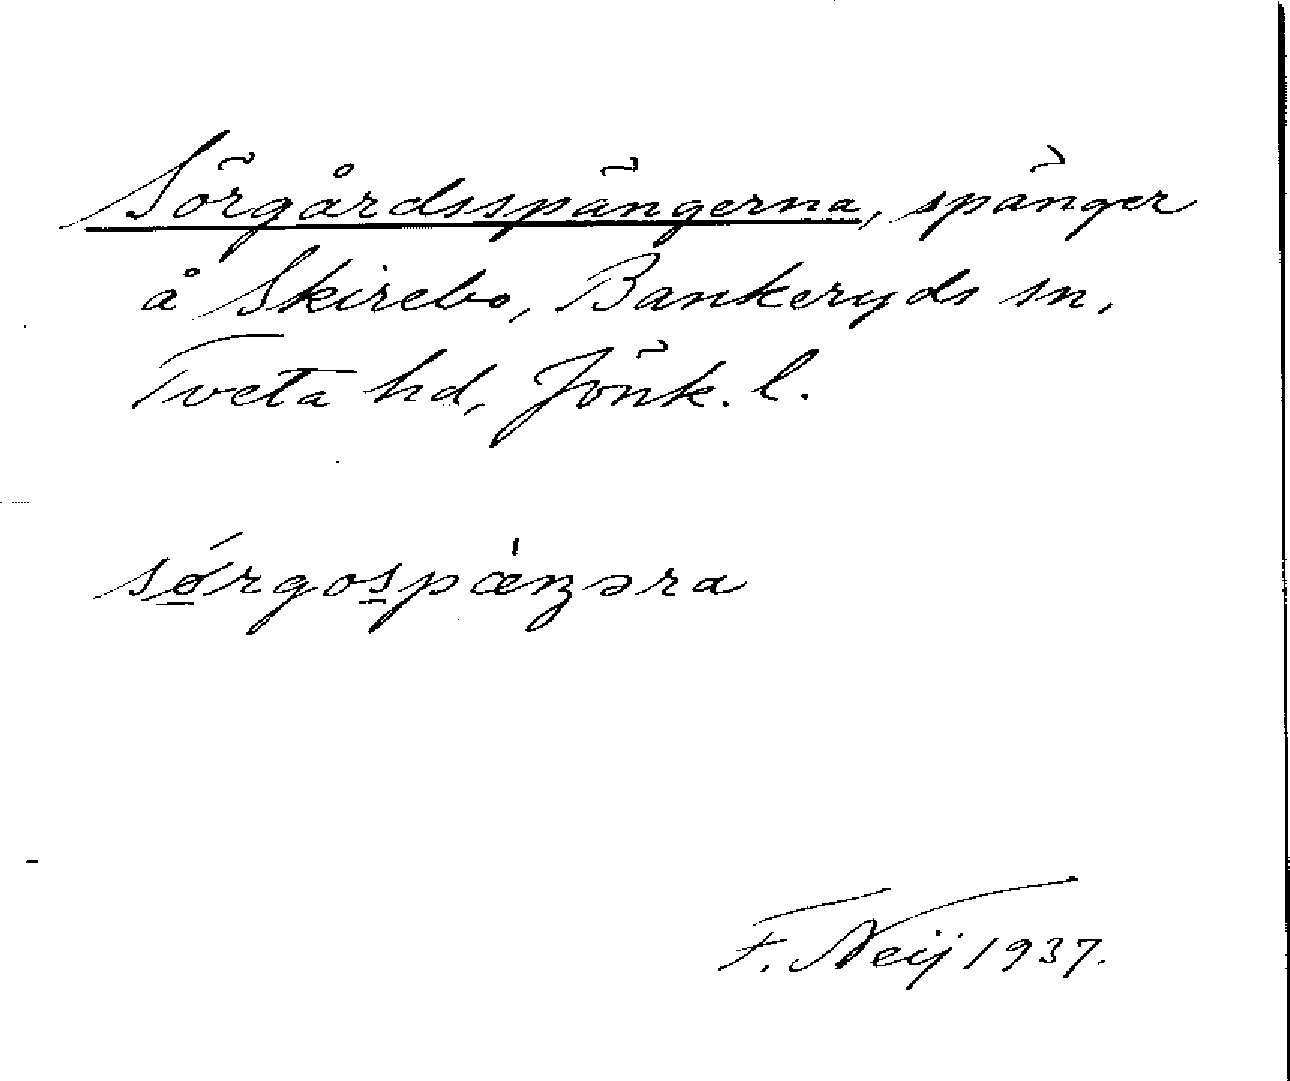 Sörgårdsspängerna, spänger
å Skirebo, Bankeryds sn,
Tveta hd, Jönk. l.
sǿrgospæ̍ŋəra
F. Neij 1937.